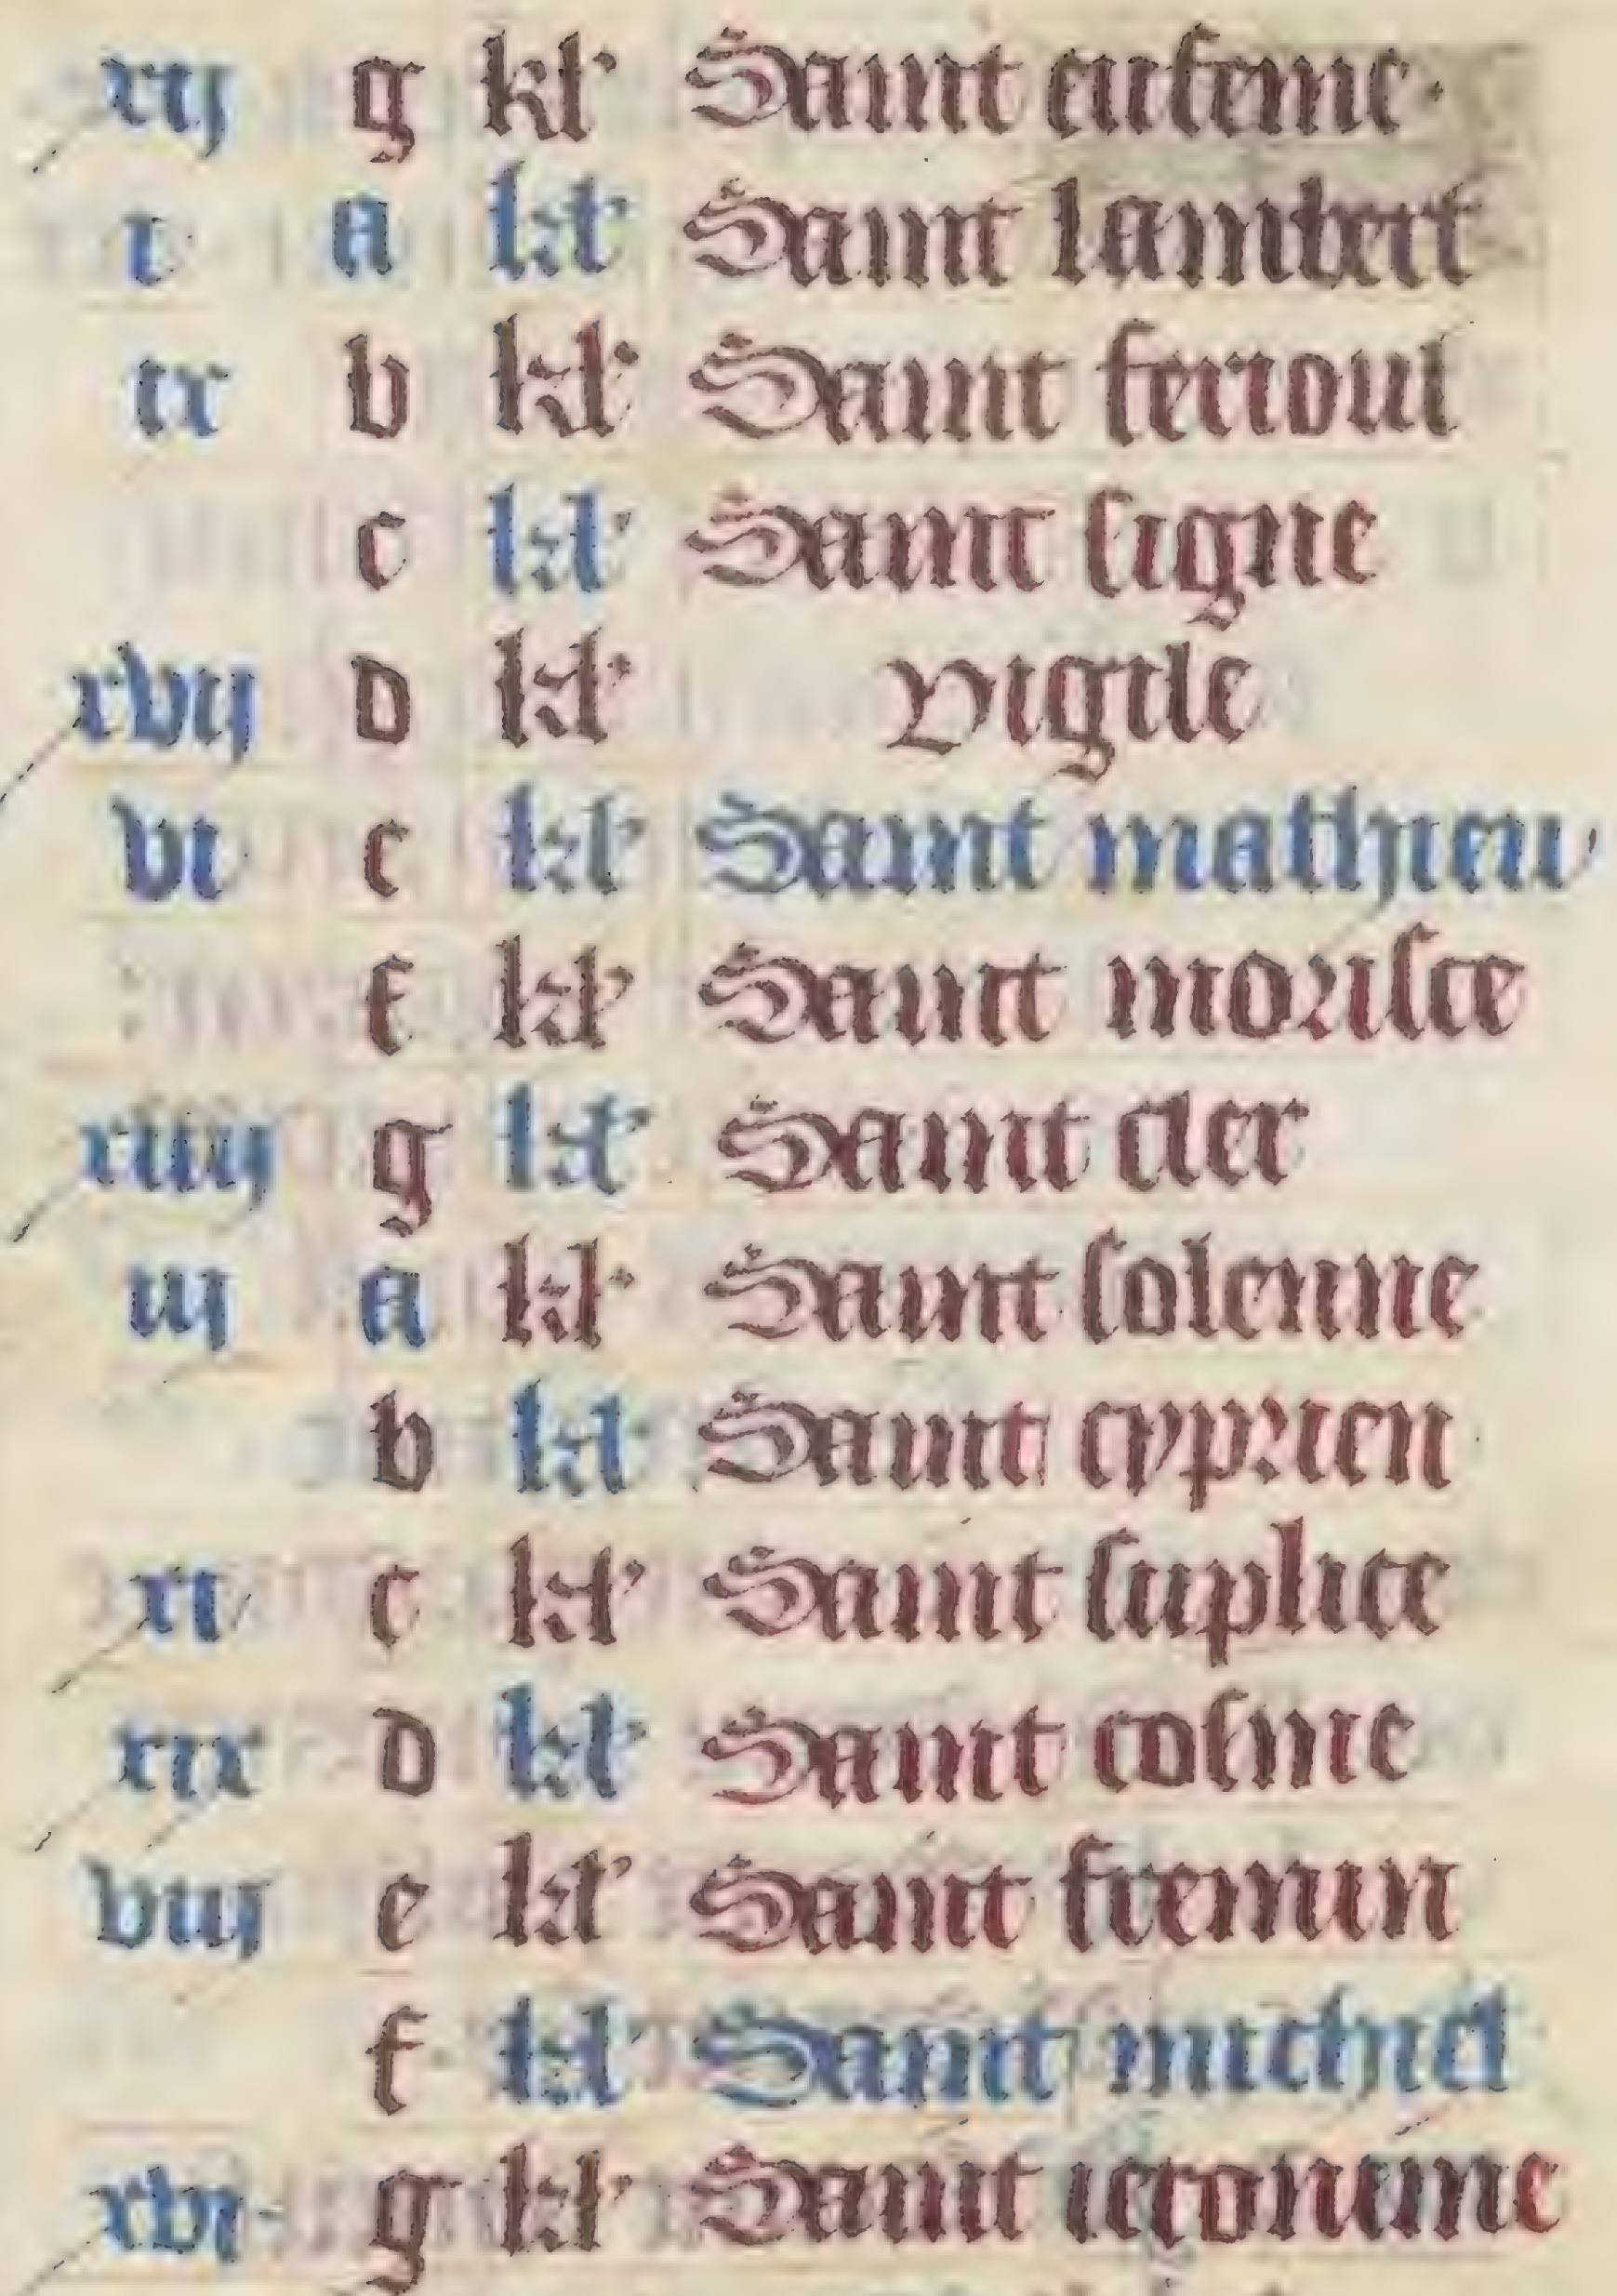 xij g kl' Saint eufeme.
i a kl' Saint lambert
ix b kl' Saint ferioul
c kl' Saint signe
xvij d kl' Vigile
vi e kl' Saint mathieu
f kl' Saint morisce
xiiij g kl' Saint cler
iij a kl' Saint solenne
b kl' Saint cyprien
xi c kl' Saint suplice
xix d kl' Saint cosme
viij e kl' Saint fremin
f kl' Saint michiel
xvi g kl' Saint ieronime